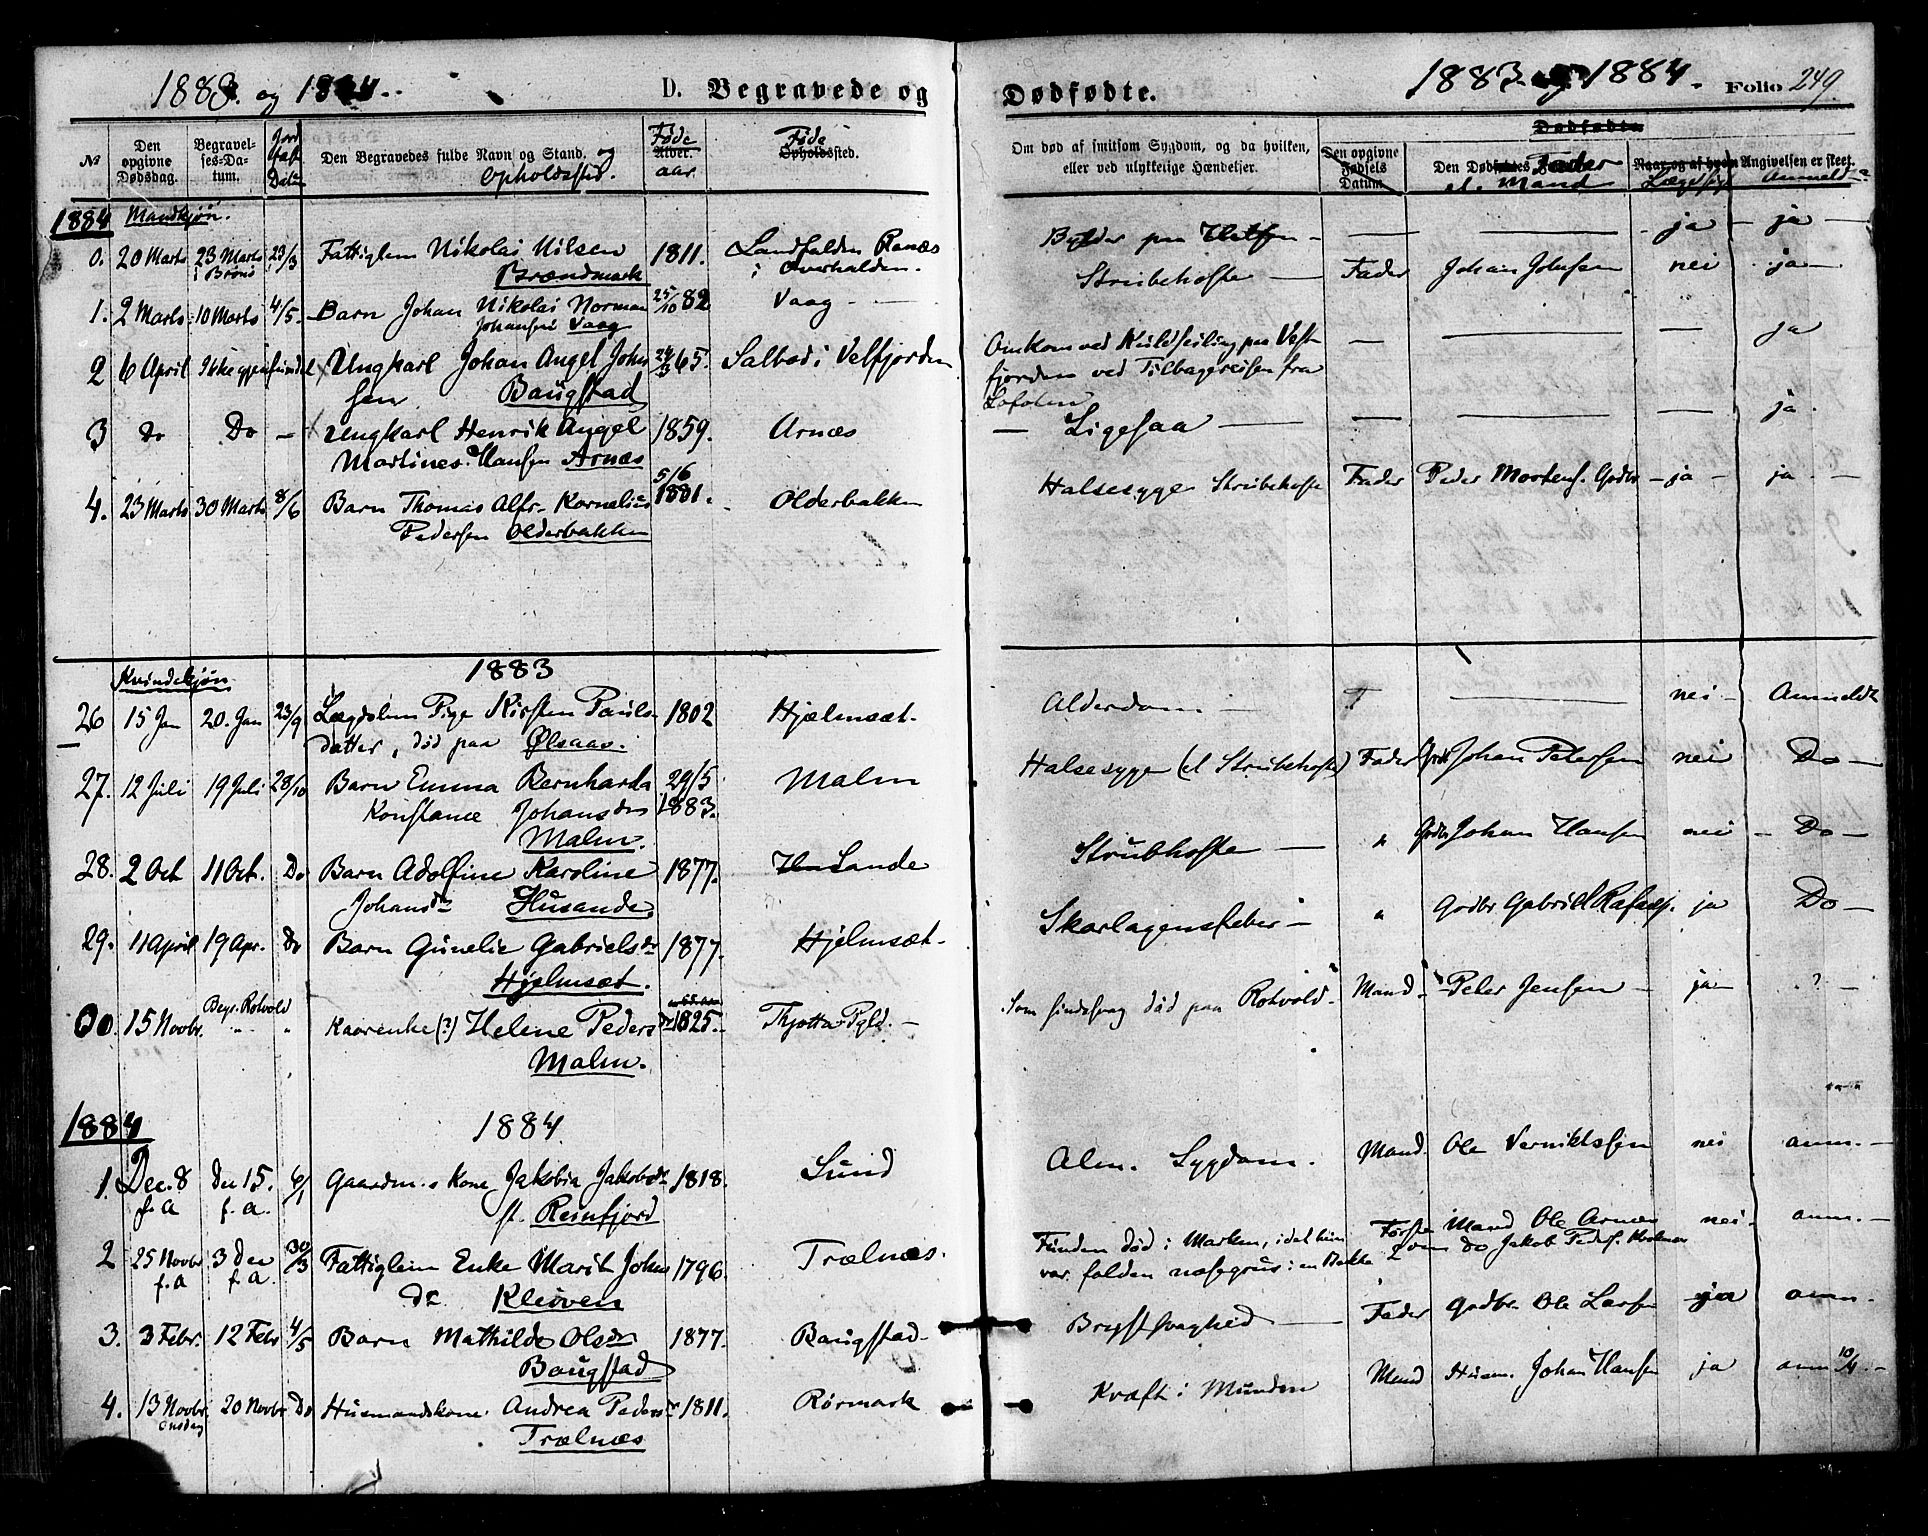 1883. og 1884.
D. Begravede og
Dødfødte.
1883 og 1884.
Folio 249.
No
Den opgivne Dødsdag.
Begravelses-Datum.
Jordfæst Datum
Den Begravedes fulde Navn og Stand. og Opholdssted.
Føde Alder. aar.
Føde Opholdssted.
Om død af smitsom Sygdom, og da hvilken, eller ved ulykkelige Hændelser.
Den opgivne Fødsels Datum.
Dødfødte
Den Dødfødtes Fader el. Mand
Naar og af hvem Angivelsen er skeet.
Lægdsyge
Anmeldt
1884 Mandkjøn.
0. 20 Marts 23 Marts i Brønø 23/3 Fattiglem Nikolai Nilsen Brændmark 1811. Landfalden Ranæs i Overhalden. Bylder paa — — — ja — ja —
1. 2 Marts 10 Marts 4/5 Barn Johan Nikolai Norman Johansen Vaag 25/10 82 Vaag — Strubehoste — Fader Johan Johnsen nei ja —
2 6 April Ikke gjenfundet Ungkarl Johan Angel Johnsen Baugstad 65. Salbod i Velfjorden Omkom ved Kuldseiling paa Vestfjorden ved Tilbagereisen fra Lofoten — — — ja
3 do Do — Ungkarl Henrik Angel Martines Hansen Arnæs 1859. Arnæs — Ligesaa — — — — ja.
4. 23 Marts 30 Marts 8/6 Barn Thomas Alfr. Kornelius Pedersen Olderbakken 5/6 1881. Olderbakken Halsesyge Strubehoste Fader Peder Mortens. Godbr — ja — ja —
Kvindekjøn 1883
26 15 Jan 20. Jan 23/9 Lægdslem Pige Kirsten Paulsdatter, død paa Ølsaas. 1802 Hjelmsæt Alderdom — — nei — Anmeldt
27. 12 Juli 19 Juli 28/10 Barn Emma Bernharda Konstance Johansdtr Malm. 29/5 1883. Malm Halsesyge (el Strubehoste) Fader Godbr Johan Petersen nei Do —
28. 2 Oct 11 Oct. Do Barn Adolfine Karoline Johansdr Husande. 1877. Sande Strubhoste — " Godbr Johan Hansen nei — Do —
29. 11 April 19 Apr. Do Barn Gunelie Gabrielsdr Hjelmsæt. 1877. Hjelmsæt Skarlagensfeber — " Godbr Gabriel Rafaels. ja Do —
15 Novbr. Begr. Rotvold " " Kaarenke (?) Helene Pedersdr Malm. 1825. Thjøtta Pgld. — Som sindssvag død paa Rotvold Mand Peter Jensen — ja — ? —
1884 1884.
1. Dec. 8 f. a Dec 15. f. a. 6/1 Gaardm.s Kone Jakobia Jakobsdr Reinfjord 1818. Sund Alm. Sygdom. Mand. Ole Verniktssen nei anm. —
2 25 Novbr f. a 3 Dec f. a. 30/3 Fattiglem Enke Marit Johnsdr Kleiven 1796. Trælnæs. Funden død i Marken, idet hun var falden næsegrus i en Bakke Første Mand Ole Arnæs 2den do Jakob Peders. nei — anm. —
3. 3 Febr. 12 Febr 4/5 Barn Mathilde Olsdr Baugstad 1877. Baugstad — Brystsvaghed — Fader Godbr Ole Larsen ja anm. —
4. 13 Novbr. Onsdag 20 Novbr Do Husmandskone Andrea Pedersdr Trælnæs 1811. Rørmark Kræft i Munden Mand Husm. Johan Hansen ja anm 10/4. —